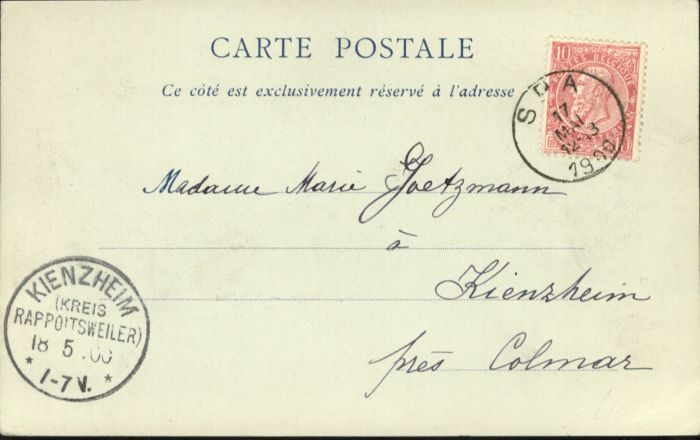 CARTE POSTALE
Ce côté est exclusivement réservé à l'adresse
10
POSTES BELGIQUE
SPA
17
MAI
12-13
1900
Madame Marie Goetzmann
à
Kienzheim
près Colmar
KIENZHEIM
(KREIS
RAPPOLTSWEILER)
18 5 .00
* 1-7 V. *